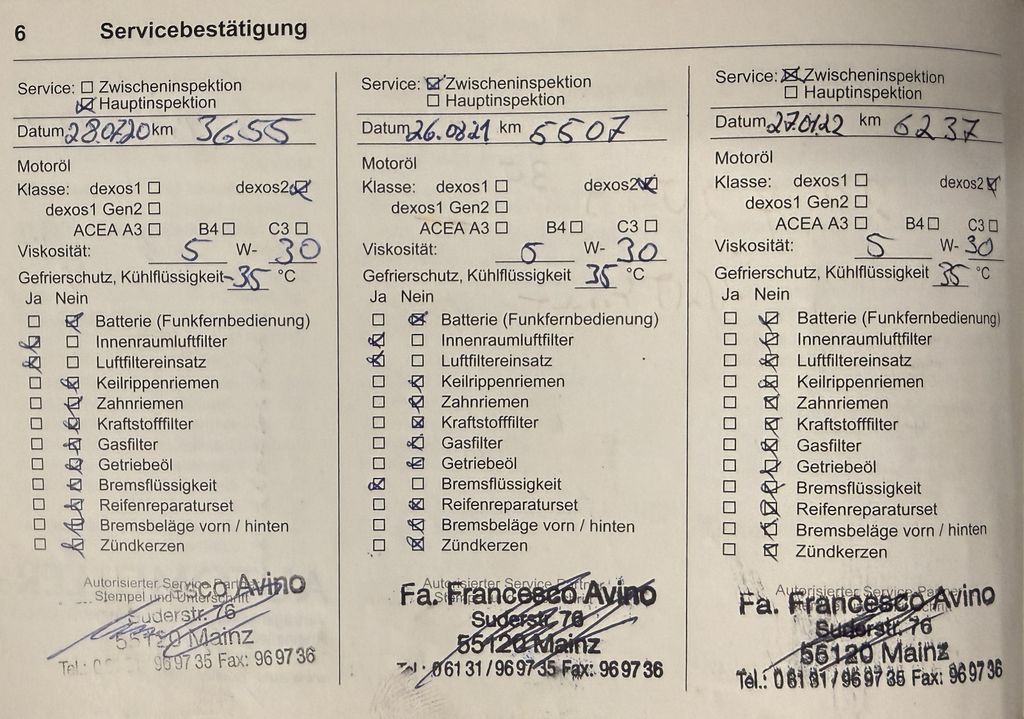 6 Servicebestätigung
Service: ☐ Zwischeninspektion
☒ Hauptinspektion
Datum 28.07.20 km 3655
Motoröl
Klasse: dexos1 ☐ dexos2 ☒
dexos1 Gen2 ☐
ACEA A3 ☐ B4 ☐ C3 ☐
Viskosität: 5 W- 30
Gefrierschutz, Kühlflüssigkeit -35 °C
Ja Nein
☐ ☒ Batterie (Funkfernbedienung)
☒ ☐ Innenraumluftfilter
☒ ☐ Luftfiltereinsatz
☐ ☒ Keilrippenriemen
☐ ☒ Zahnriemen
☐ ☒ Kraftstofffilter
☐ ☒ Gasfilter
☐ ☒ Getriebeöl
☐ ☒ Bremsflüssigkeit
☐ ☒ Reifenreparaturset
☐ ☒ Bremsbeläge vorn / hinten
☐ ☒ Zündkerzen
Autorisierter Service
Stempel und Unterschrift
co Avino
Suderstr. 76
55120 Mainz
Tel.: 96 97 35 Fax: 96 97 36
Service: ☒ Zwischeninspektion
☐ Hauptinspektion
Datum 26.08.21 km 5507
Motoröl
Klasse: dexos1 ☐ dexos2 ☒
dexos1 Gen2 ☐
ACEA A3 ☐ B4 ☐ C3 ☐
Viskosität: 5 W- 30
Gefrierschutz, Kühlflüssigkeit 35 °C
Ja Nein
☐ ☒ Batterie (Funkfernbedienung)
☒ ☐ Innenraumluftfilter
☒ ☐ Luftfiltereinsatz
☐ ☒ Keilrippenriemen
☐ ☒ Zahnriemen
☐ ☒ Kraftstofffilter
☐ ☒ Gasfilter
☐ ☒ Getriebeöl
☒ ☐ Bremsflüssigkeit
☐ ☒ Reifenreparaturset
☐ ☒ Bremsbeläge vorn / hinten
☐ ☒ Zündkerzen
Autorisierter Service Partner
Fa. Francesco Avino
Suderstr. 76
55120 Mainz
Tel.: 0 61 31 / 96 97 35 Fax: 96 97 36
Service: ☒ Zwischeninspektion
☐ Hauptinspektion
Datum 27.01.22 km 6237
Motoröl
Klasse: dexos1 ☐ dexos2 ☒
dexos1 Gen2 ☐
ACEA A3 ☐ B4 ☐ C3 ☐
Viskosität: 5 W- 30
Gefrierschutz, Kühlflüssigkeit 35 °C
Ja Nein
☐ ☒ Batterie (Funkfernbedienung)
☐ ☒ Innenraumluftfilter
☐ ☒ Luftfiltereinsatz
☐ ☒ Keilrippenriemen
☐ ☒ Zahnriemen
☐ ☒ Kraftstofffilter
☐ ☒ Gasfilter
☐ ☒ Getriebeöl
☐ ☒ Bremsflüssigkeit
☐ ☒ Reifenreparaturset
☐ ☒ Bremsbeläge vorn / hinten
☐ ☒ Zündkerzen
Autorisierter Service
Fa. Francesco Avino
Suderstr. 76
55120 Mainz
Tel.: 0 61 31 / 96 97 35 Fax: 96 97 36